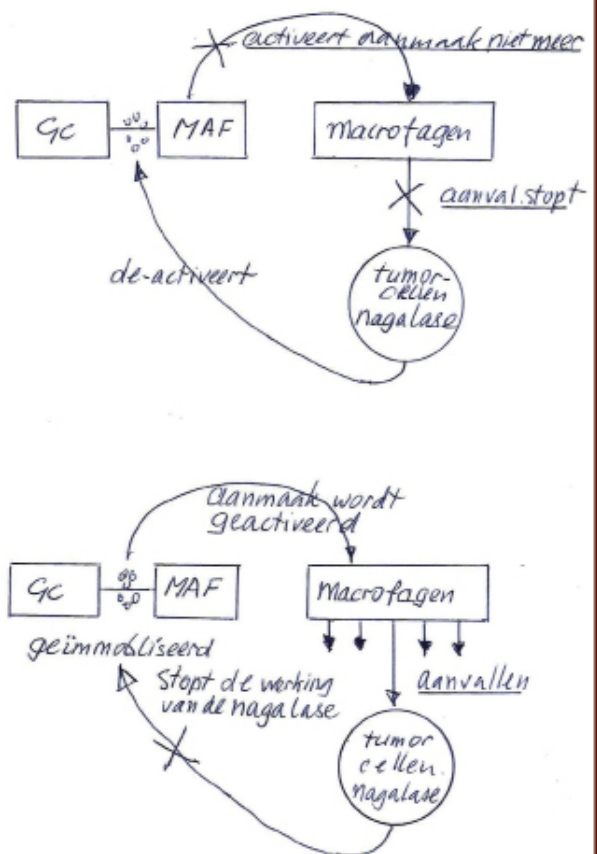 activeert aanmaak niet meer
Gc
MAF
macrofagen
aanval stopt
de-activeert
tumor-
cellen
nagalase
aanmaak wordt
geactiveerd
Gc
MAF
Macrofagen
geïmmobliseerd
Stopt de werking
van de nagalase
aanvallen
tumor
cellen.
nagalase